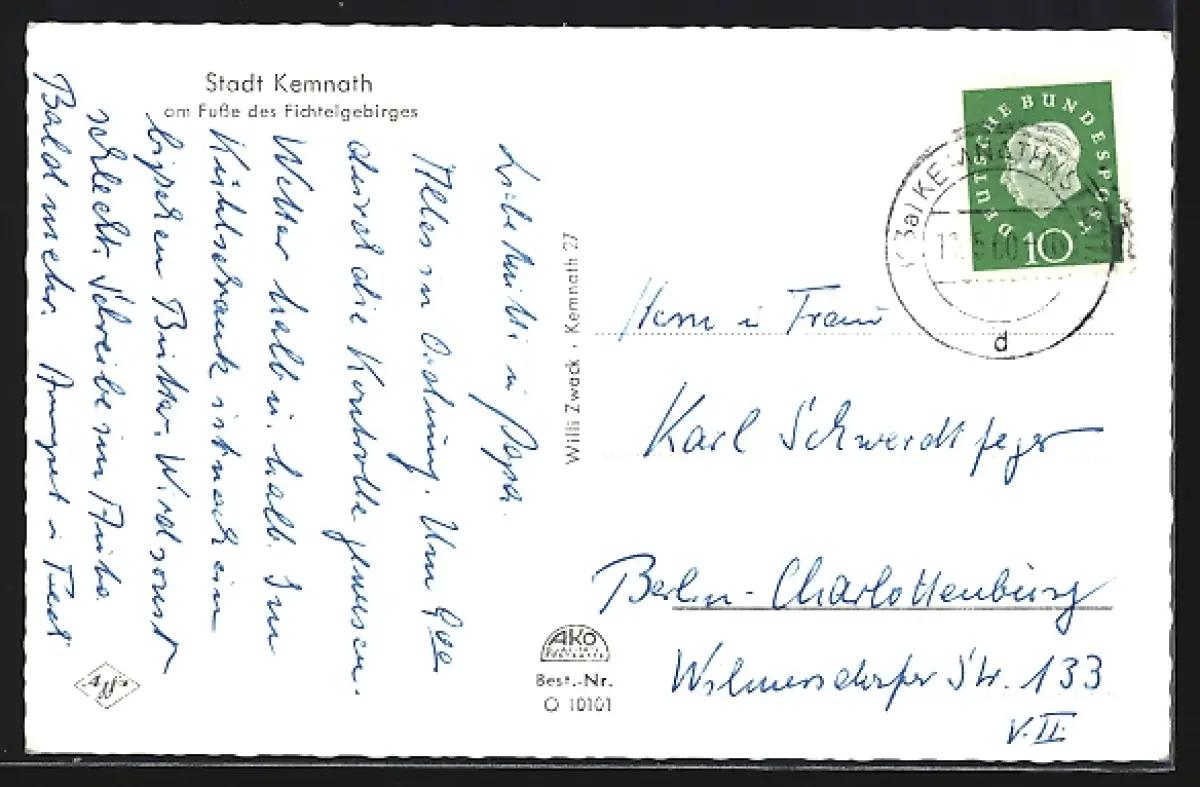 Stadt Kemnath
am Fuße des Fichtelgebirges
Liebe Mutti u Papa.
Alles in Ordnung. Um 9 00
durch die Kontrolle gewesen.
Wetter halb u. halb. Im
Kühlschrank ist noch ein
bischen Butter. Wird sonst
schlecht. Schreibe im Auto.
Bald mehr. u
Willi Zwack, Kemnath 27
AKO
Best.-Nr.
O 10101
Agfa
DEUTSCHE BUNDESPOST
10
(13a) KEMNATH
60
d
Herrn u Frau
Karl Schwerdtfeger
Berlin-Charlottenburg
Wilmersdorfer Str. 133
v. II